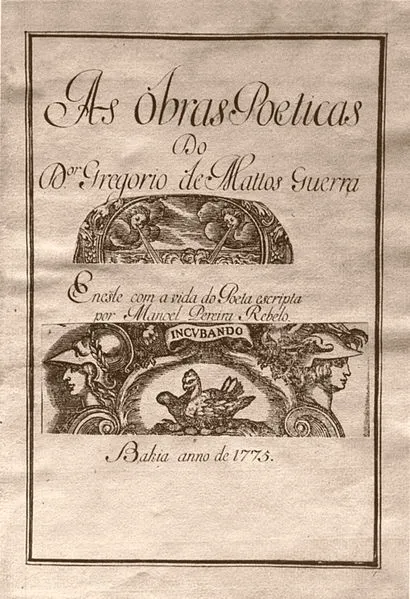 As Obras Poeticas
Do
Dor Gregorio de Mattos Guerra
Eneste com a vida do Poeta escripta
por Manoel Pereira Rebelo.
INCVBANDO
Bahia anno de 1775.